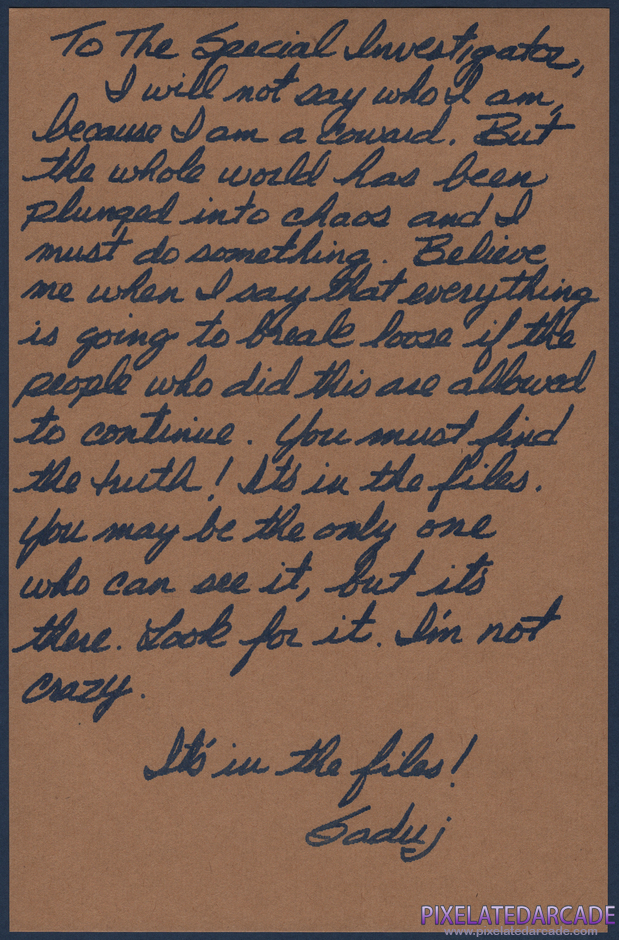 To The Special Investigator,
I will not say who I am,
because I am a coward. But
the whole world has been
plunged into chaos and I
must do something. Believe
me when I say that everything
is going to break loose if the
people who did this are allowed
to continue. You must find
the truth! It's in the files.
You may be the only one
who can see it, but it's
there. Look for it. I'm not
crazy.
It's in the files!
Saduj
PIXELATEDARCADE
www.pixelatedarcade.com